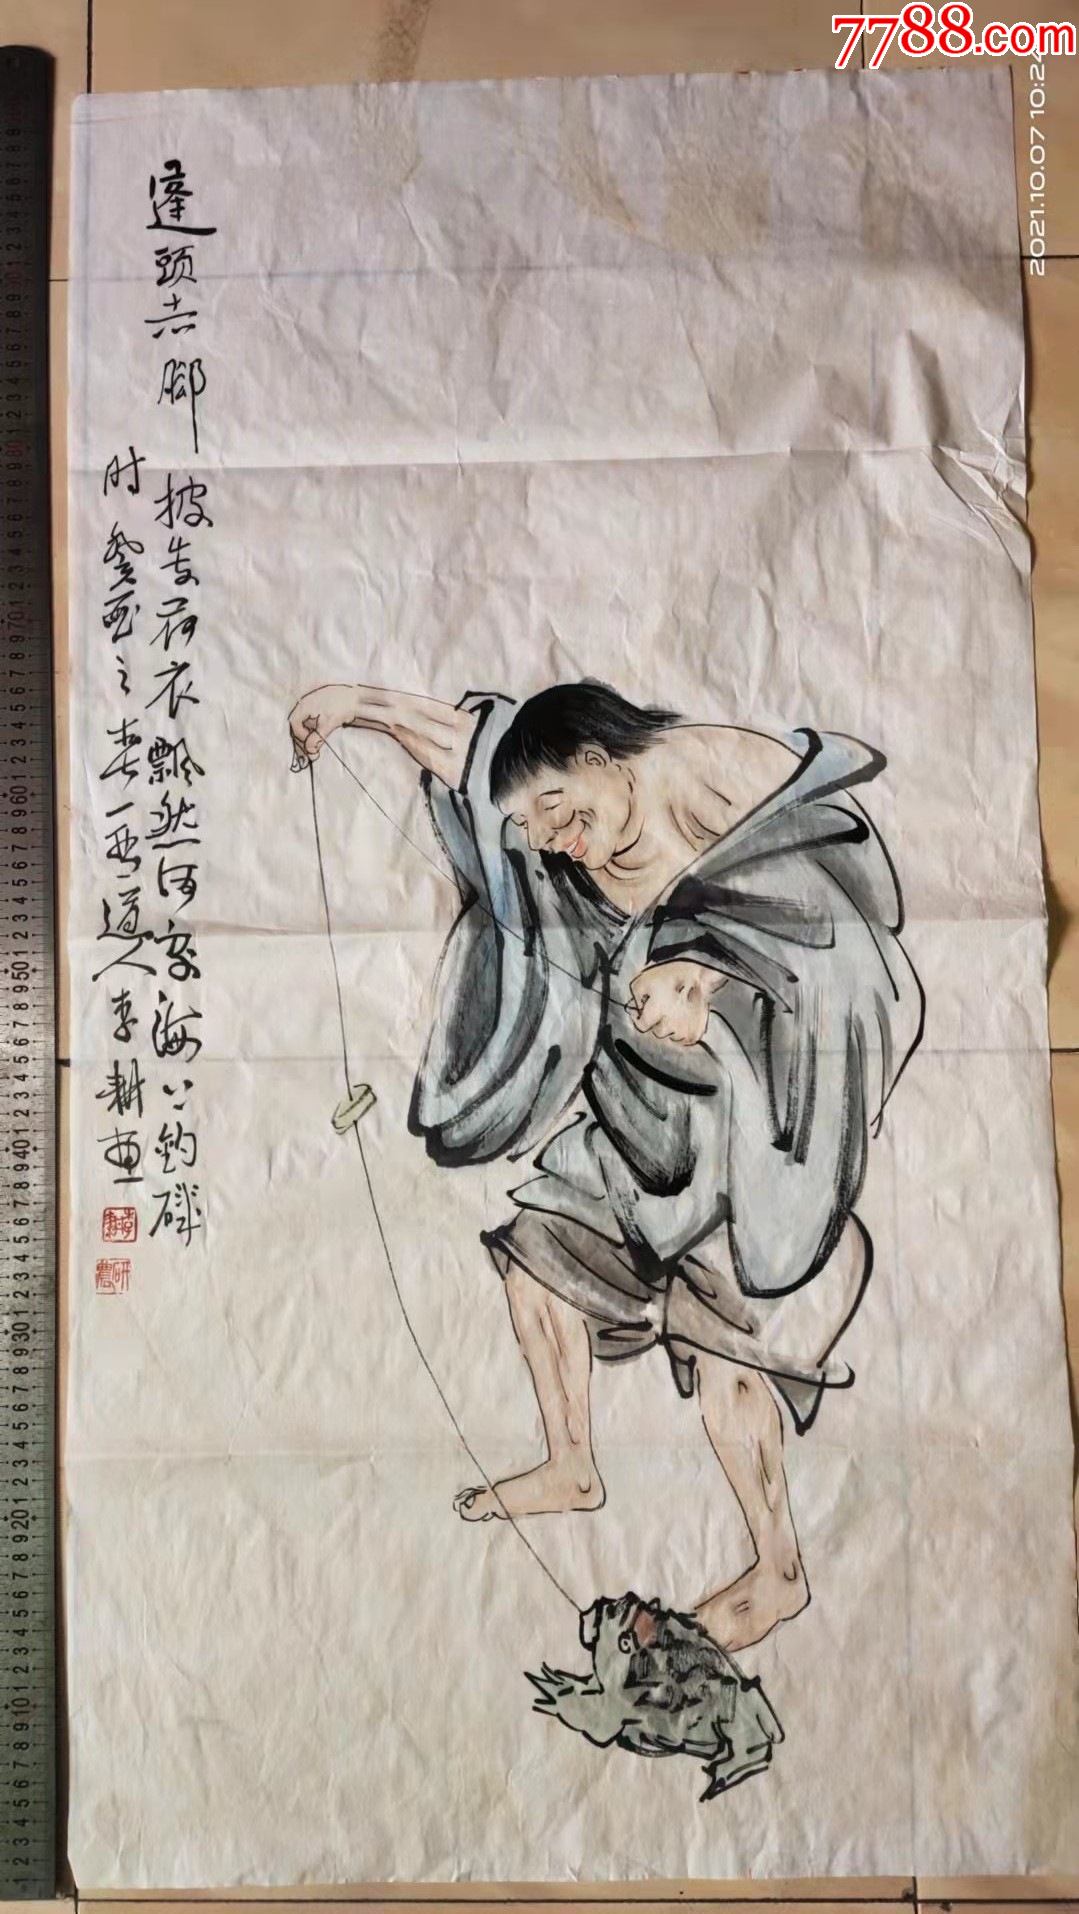 7788.com
2021.10.07 10:24
蓬頭赤脚
披发荷衣飘然河岸海上钓磯
时癸酉之春一亚道人李耕画
李耕
研農